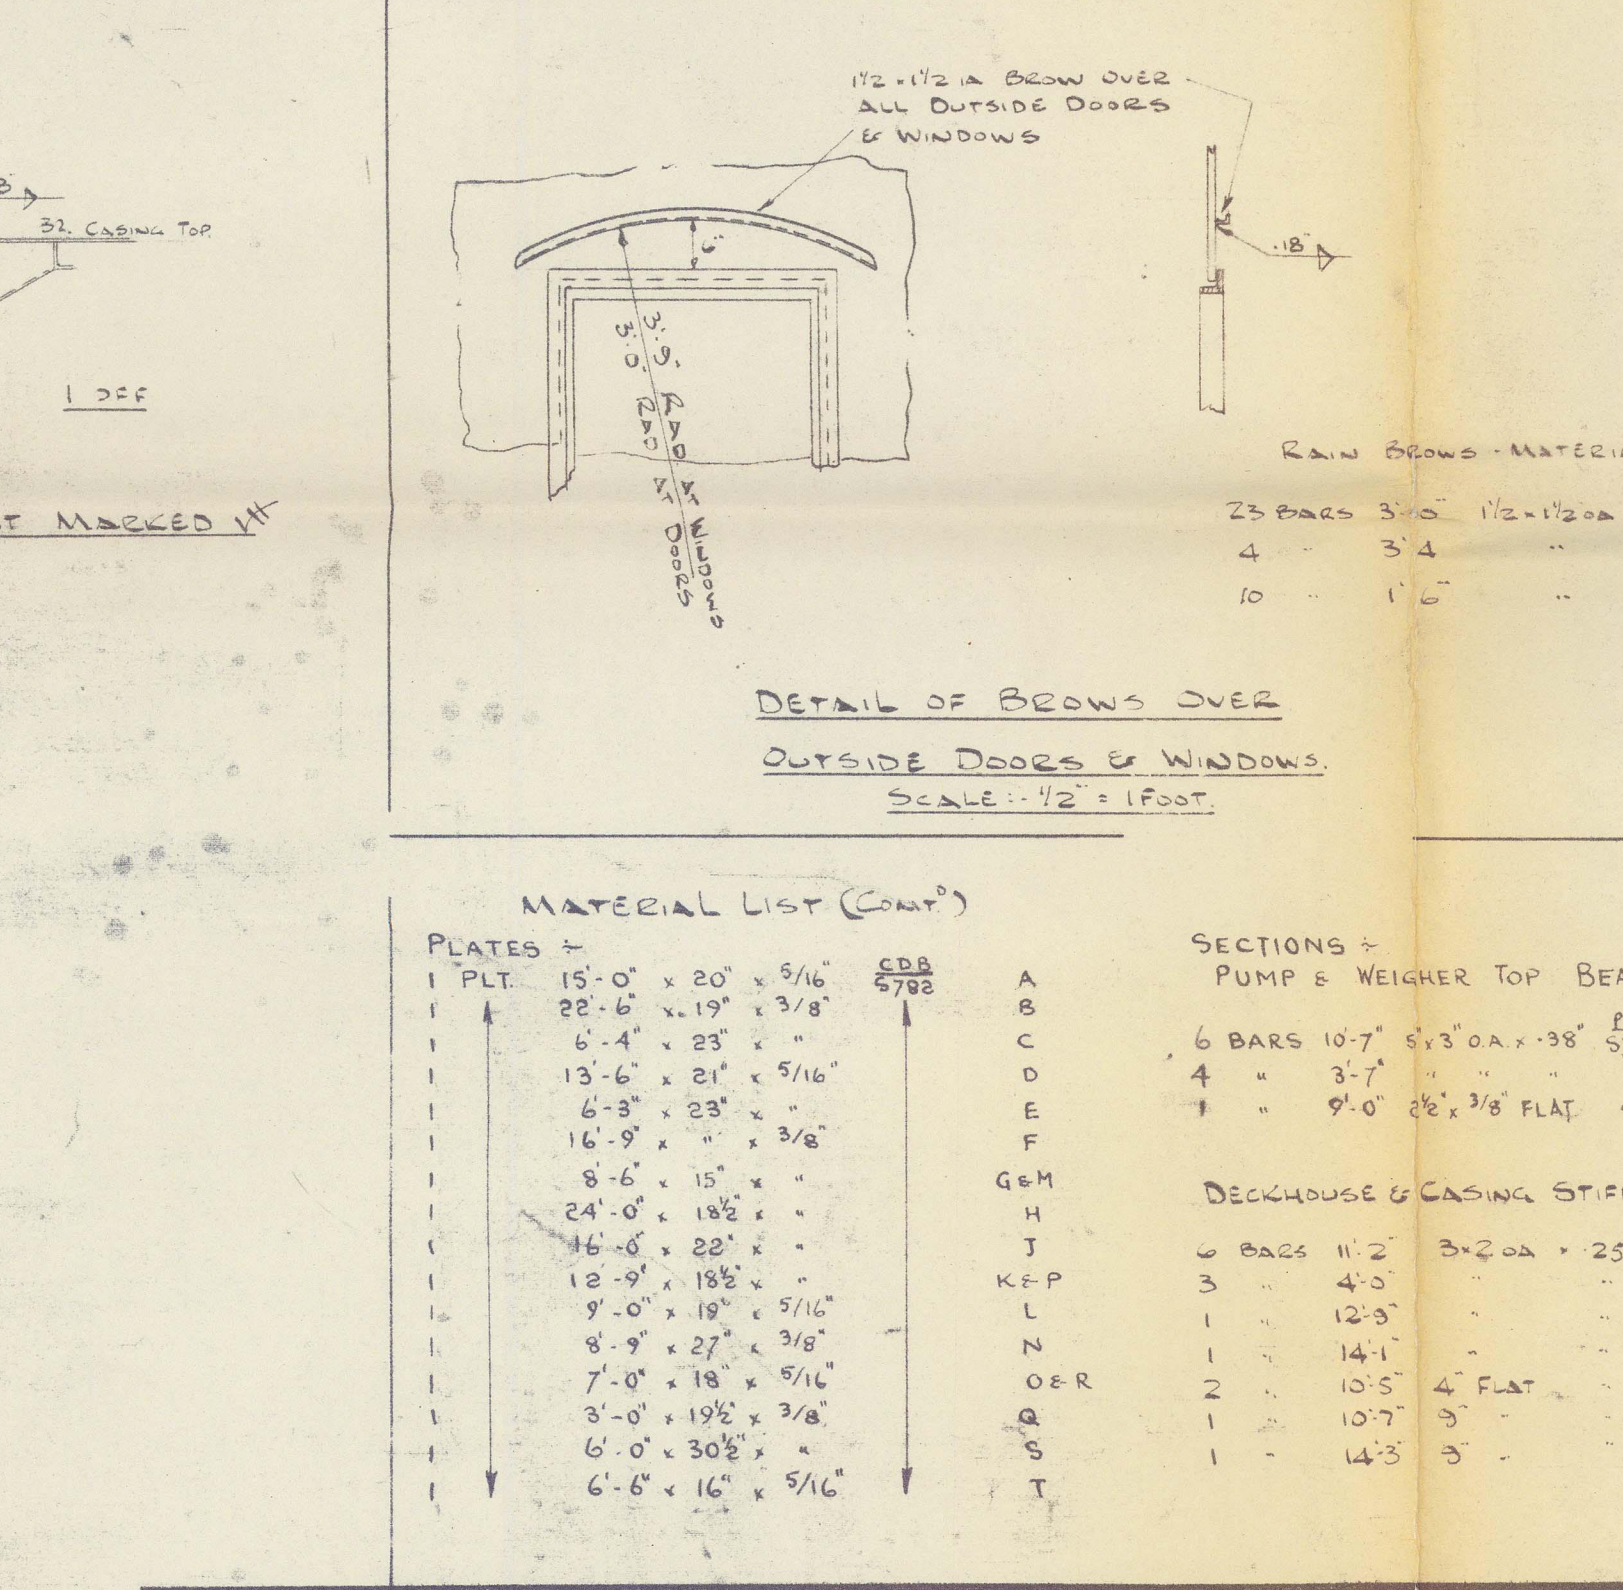 1½ × 1½ OA BROW OVER
ALL OUTSIDE DOORS
& WINDOWS
32. CASING TOP.
6"
.18"
3'.9" RAD AT WINDOWS
3'.0" RAD AT DOORS
1 OFF
MARKED
RAIN BROWS - MATERI
23 BARS 3'-0" 1½ × 1½ OA
4 " 3' 4 "
10 " 1' 6" "
DETAIL OF BROWS OVER
OUTSIDE DOORS & WINDOWS.
SCALE :- ½" = 1 FOOT.
MATERIAL LIST (CONTD)
PLATES ÷
1 PLT. 15'-0" × 20" × 5/16" CDB 5782 A
1 22'-6" × 19" × 3/8" B
1 6'-4" × 23" × " C
1 13'-6" × 21" × 5/16" D
1 6'-3" × 23" × " E
1 16'-9" × " × 3/8" F
1 8'-6" × 15" × " G & M
1 24'-0" × 18½" × " H
1 16'-0" × 22" × " J
1 12'-9" × 18½" × " K & P
1 9'-0" × 19" × 5/16" L
1 8'-9" × 27" × 3/8" N
1 7'-0" × 18" × 5/16" O & R
1 3'-0" × 19½" × 3/8" Q
1 6'-0" × 30½" × " S
1 6'-6" × 16" × 5/16" T
SECTIONS ÷
PUMP & WEIGHER TOP BEA
6 BARS 10'-7" 5" × 3" O.A. × .38"
4 " 3'-7" " " "
1 " 9'-0" 2½" × 3/8" FLAT
DECKHOUSE & CASING STIF
6 BARS 11'-2" 3×2 OA × .25
3 " 4'-0" " "
1 " 12'-9" " "
1 " 14'-1" " "
2 " 10'-5" 4" FLAT "
1 " 10'-7" 9" " "
1 " 14'-3" 9" " "